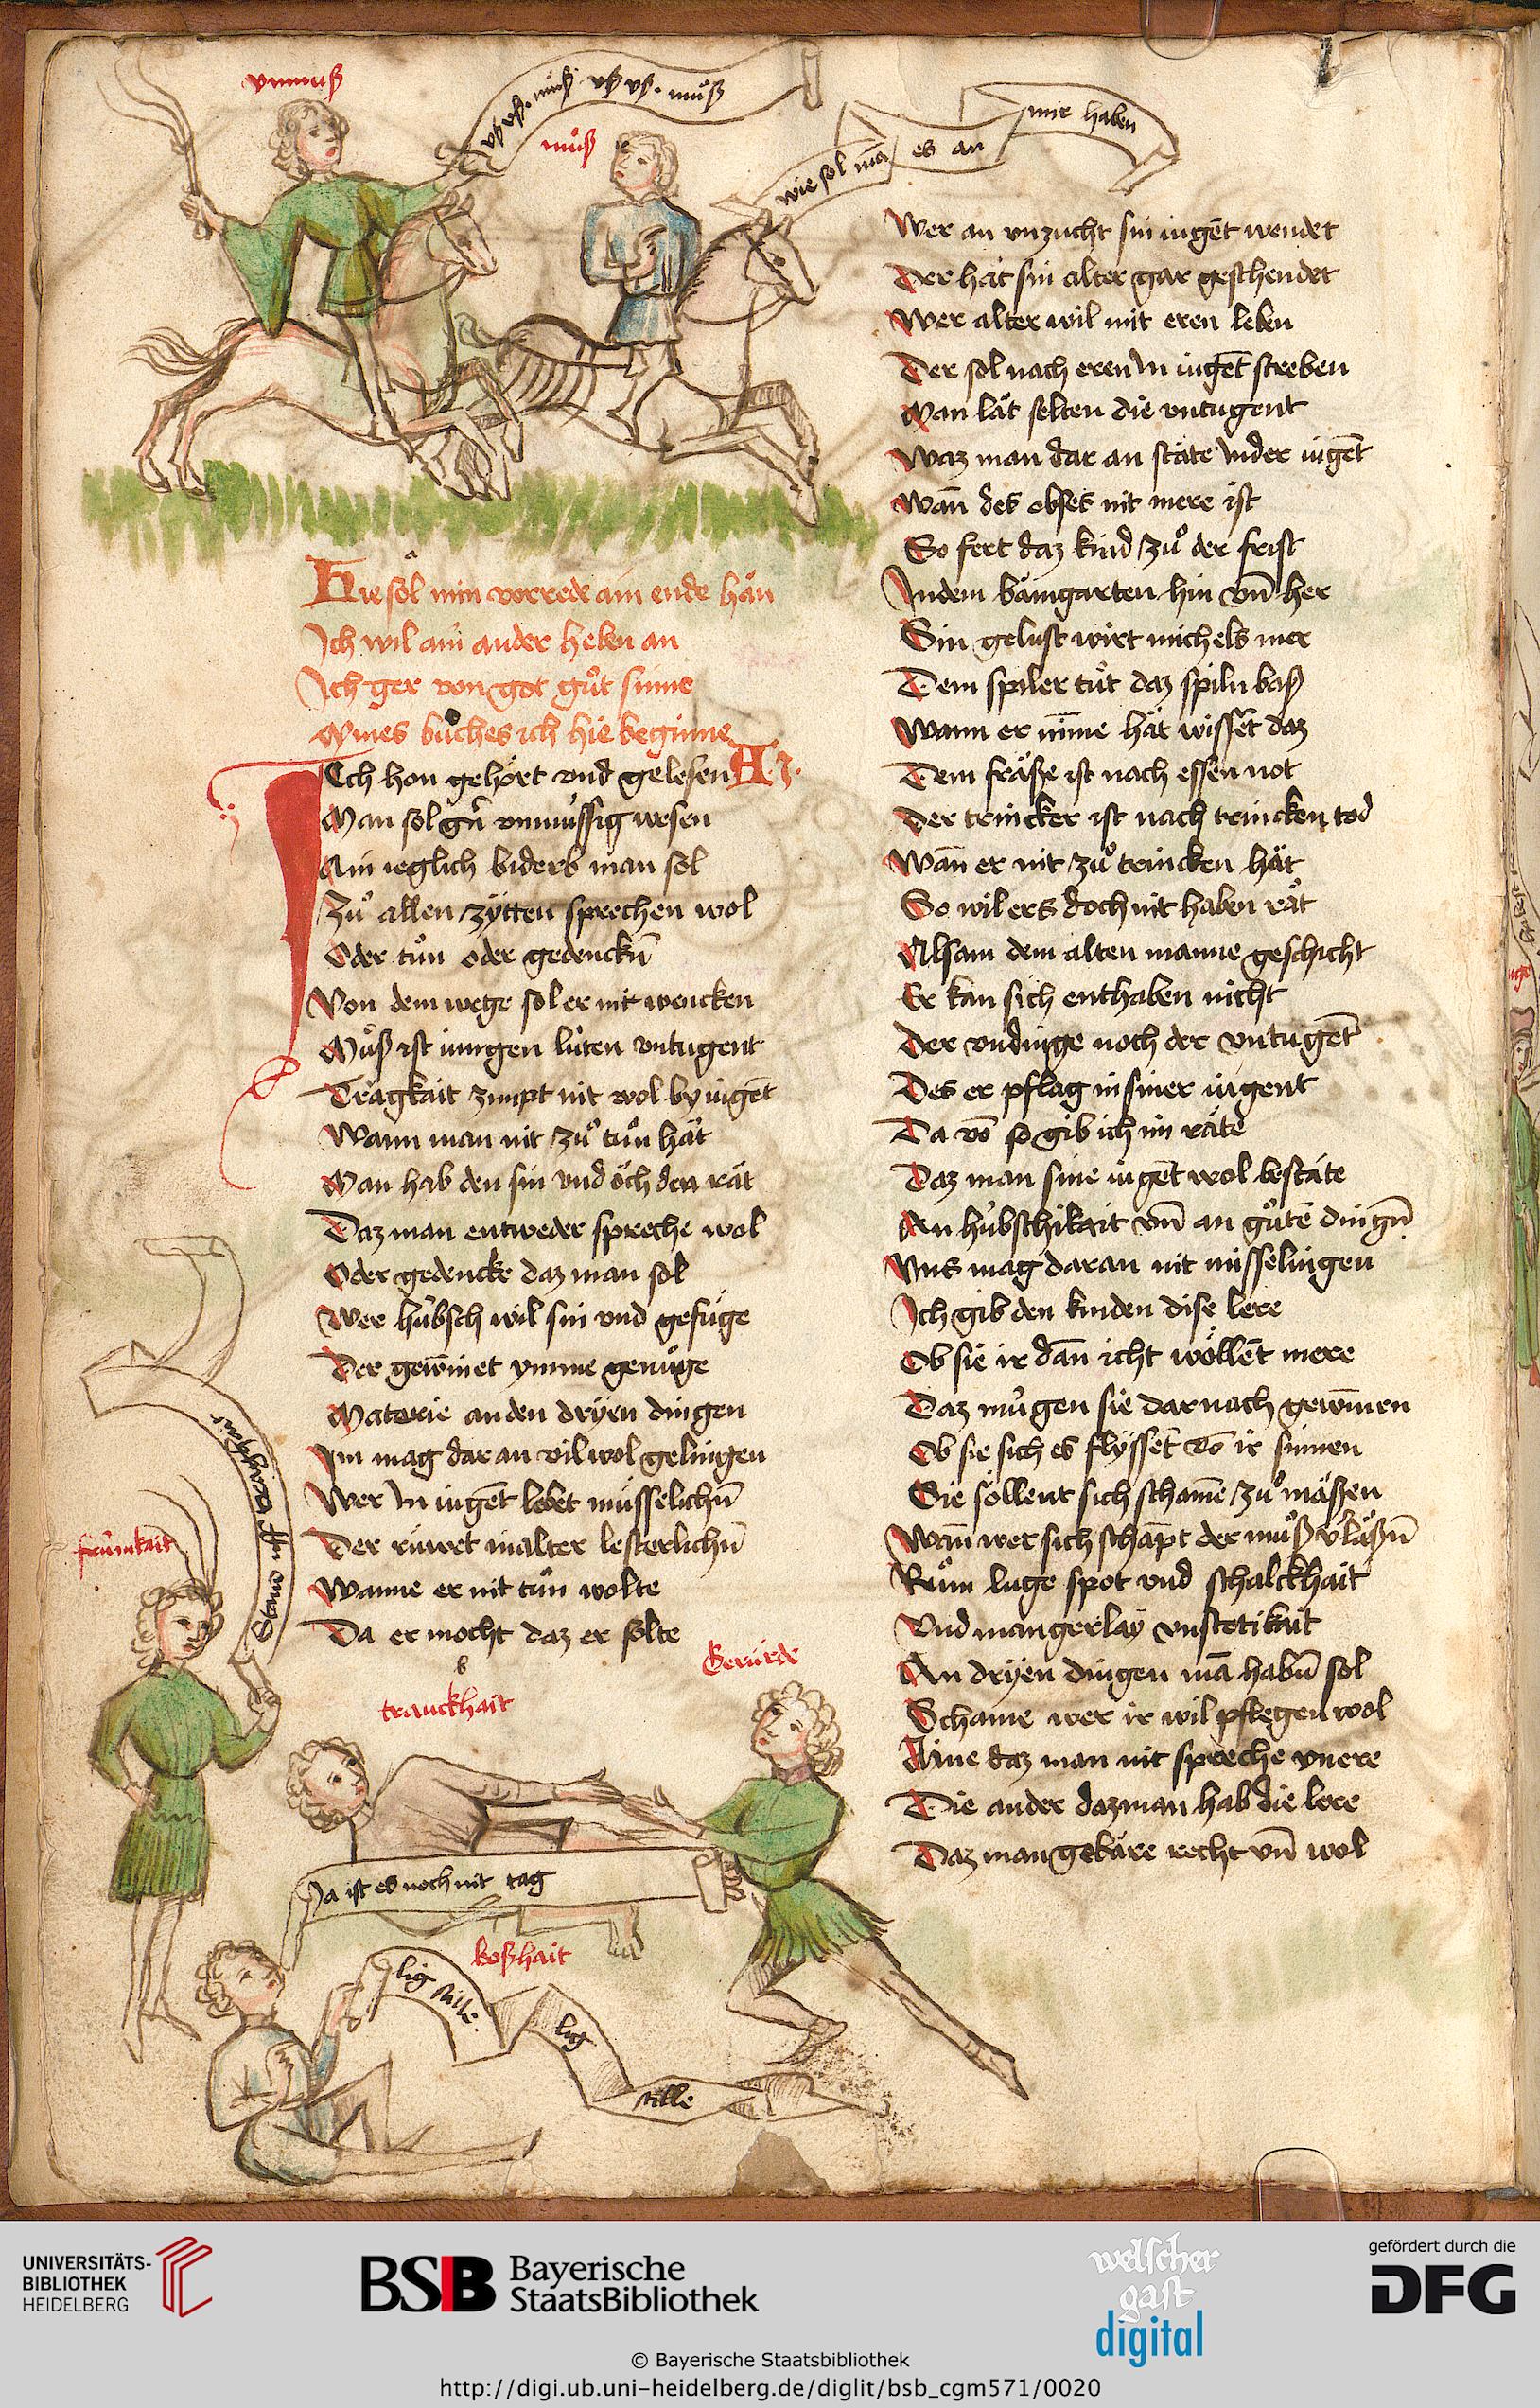 vnmuß
vß vß. müß vß vß. muͦß
muͦß
wie sol mā es an mir haben
Hie sol min vorrede ain ende hän
Ich wil ain ander heben an
Ich ger von got guͦt sinne
Mines buͦches ich hie beginne
A I.
Ich hon gehört vnd gelesen
Man sol gn̄ vnmüssig wesen
Ain ieglich biderb man sol
Zuͦ allen zÿtten sprechen wol
Oder tuͦn oder gedenckn̄
Von dem wege sol er nit wencken
Muͦß ist iungen lüten vntugent
Trägkait zimpt nit wol by iugēt
Wann man nit zuͦ tuͦn hät
Man hab den sin vnd öch den rät
Daz man entweder spreche wol
Oder gedencke daz man sol
Wer hübsch wil sin vnd gefüge
Der gewīnet ymme genüge
Materie an den dryen dingen
Im mag dar an vil wol gelingen
Wer In iugēt lebet müsselichn̄
Der rüwet in alter lesterlichn̄
Wanne er nit tuͦn wolte
Da er mocht daz er solte
frümkait
Stand vff
b
trauckhait
Gerürde
Ja ist es noch nit tag
boßhait
lig stille.
lig
stille
Wer an vnzucht sin iugēt wendet
Der hät sin alter gar geschendet
Wer alter wil mit eren leben
Der sol nach eren In iugēt streben
Man lät selten die vntugent
Waz man dar an stäte Inder iugēt
Wān des obses nit mere ist
So fert daz kind zuͦ der frist
Indem bämgarten hin vn̄ her
Sin gelust wirt michels mer
Dem spiler tuͦt daz spiln baß
Wann er nīme hät wissēt daz
Dem fräße ist nach essen not
Der trincker ist nach trincken tod
Wān er nit zuͦ trincken hät
So wil ers doch nit haben rät
Alsam dem alten manne geschicht
Er kan sich enthaben nicht
Der vndinge noch der vntugēt
Des er pflag in siner iugent
Da vō so gib ich im räte
Daz man sine iugēt wol bestäte
An hübschikait vn̄ an guͦtē dingn̄
Vns mag daran nit misselingen
Ich gib den kinden dise lere
Ob sie ir dān icht wöllēt mere
Daz mügen sie dar nach gewīnen
Ob sie sich es flyssēt vō ir sinnen
Sie söllent sich schamē zuͦ mäßen
Wān wer sich schāpt der muͦß v'läßn̄
Ruͦm luge spot vnd schalckhait
Vnd mangerlay vnstetikait
An dryen dingen mā habn̄ sol
Schame wer ir wil pflegen wol
Aine daz man nit spreche vnere
Die ander daz man hab die lere
Daz man gebäre recht vn̄ wol
UNIVERSITÄTS-
BIBLIOTHEK
HEIDELBERG
BSB Bayerische
StaatsBibliothek
welscher
gast
digital
gefördert durch die
DFG
© Bayerische Staatsbibliothek
http://digi.ub.uni-heidelberg.de/diglit/bsb_cgm571/0020